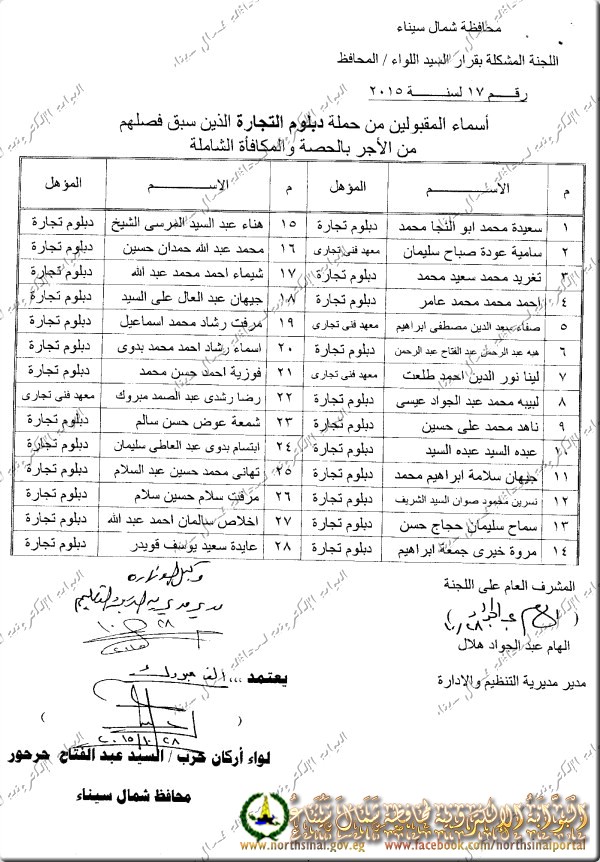 محافظة شمال سيناء
اللجنة المشكلة بقرار السيد اللواء / المحافظ
رقم ١٧ لسنة ٢٠١٥
أسماء المقبولين من حملة دبلوم التجارة الذين سبق فصلهم
من الأجر بالحصة والمكافأة الشاملة
م الاسم المؤهل م الاسم المؤهل
١ سعيدة محمد ابو النجا محمد دبلوم تجارة ١٥ هناء عبد السيد المرسى الشيخ دبلوم تجارة
٢ سامية عودة صباح سليمان معهد فنى تجارى ١٦ محمد عبد الله حمدان حسين دبلوم تجارة
٣ تغريد محمد سعيد محمد دبلوم تجارة ١٧ شيماء احمد محمد عبد الله دبلوم تجارة
٤ احمد محمد محمد عامر دبلوم تجارة ١٨ جيهان عبد العال على السيد دبلوم تجارة
٥ صفاء سعد الدين مصطفى ابراهيم معهد فنى تجارى ١٩ مرفت رشاد محمد اسماعيل دبلوم تجارة
٦ هبه عبد الرحمن عبد الفتاح عبد الرحمن دبلوم تجارة ٢٠ اسماء رشاد احمد محمد بدوى دبلوم تجارة
٧ لينا نور الدين احمد طلعت معهد فنى تجارى ٢١ فوزية احمد حسن محمد دبلوم تجارة
٨ لبيبه محمد عبد الجواد عيسى دبلوم تجارة ٢٢ رضا رشدى عبد الصمد مبروك معهد فنى تجارى
٩ ناهد محمد على حسين دبلوم تجارة ٢٣ شمعة عوض حسن سالم دبلوم تجارة
١٠ عبده السيد عبده السيد دبلوم تجارة ٢٤ ابتسام بدوى عبد العاطى سليمان دبلوم تجارة
١١ جيهان سلامة ابراهيم محمد دبلوم تجارة ٢٥ تهانى محمد حسين عبد السلام دبلوم تجارة
١٢ نسرين محمود صوان السيد الشريف دبلوم تجارة ٢٦ مرفت سلام حسين سلام دبلوم تجارة
١٣ سماح سليمان حجاج حسن دبلوم تجارة ٢٧ اخلاص سالمان احمد عبد الله دبلوم تجارة
١٤ مروة خيرى جمعة ابراهيم دبلوم تجارة ٢٨ عايدة سعيد يوسف قويدر دبلوم تجارة
المشرف العام على اللجنة
وكيل الوزارة
مدير مديرية التربية والتعليم
١٠/٢٨
١٠/٢٨
الهام عبد الجواد هلال
مدير مديرية التنظيم والادارة
يعتمد ،،،
٢٠١٥/١٠/٢٨
لواء أركان حرب / السيد عبد الفتاح حرحور
محافظ شمال سيناء
البوابة الإلكترونية لمحافظة شمال سيناء
www.northsinai.gov.eg www.facebook.com/northsinaiportal